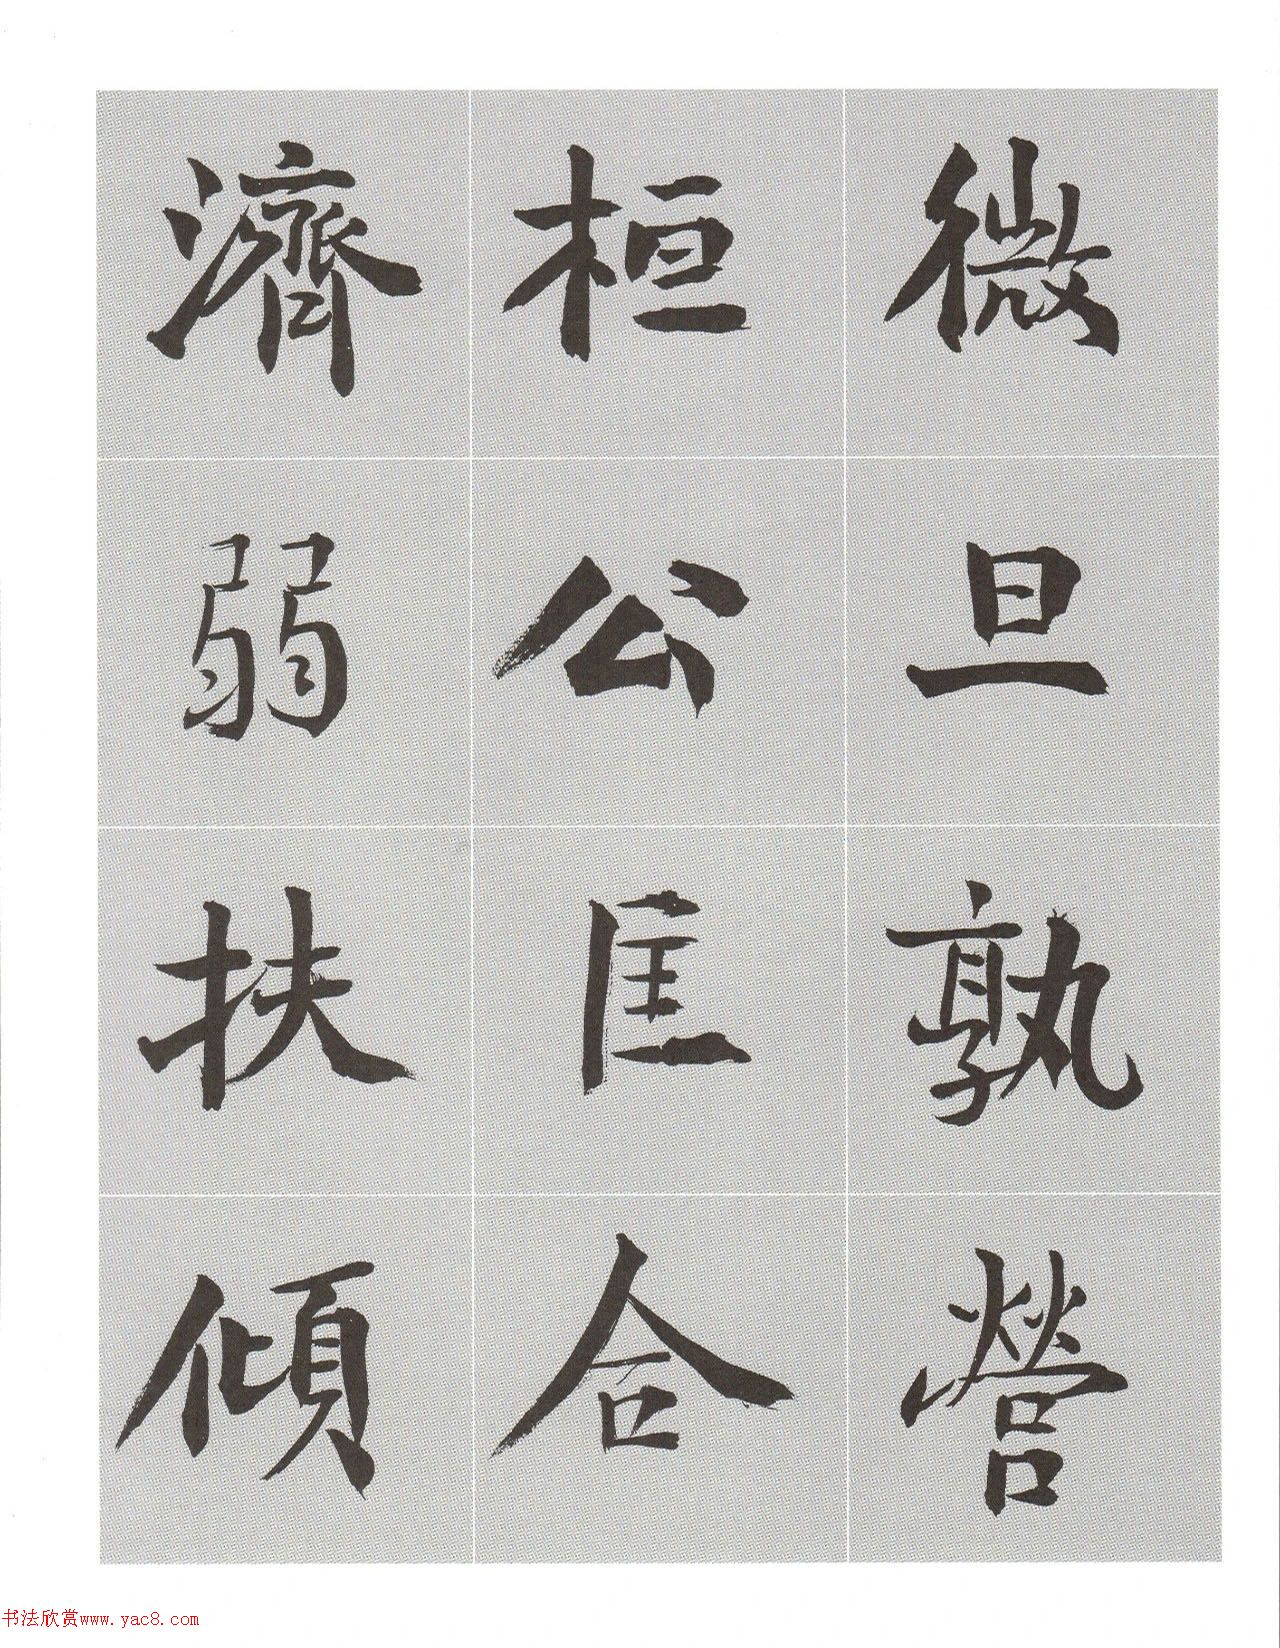 微旦孰營
桓公匡合
濟弱扶傾
书法欣赏www.yac8.com